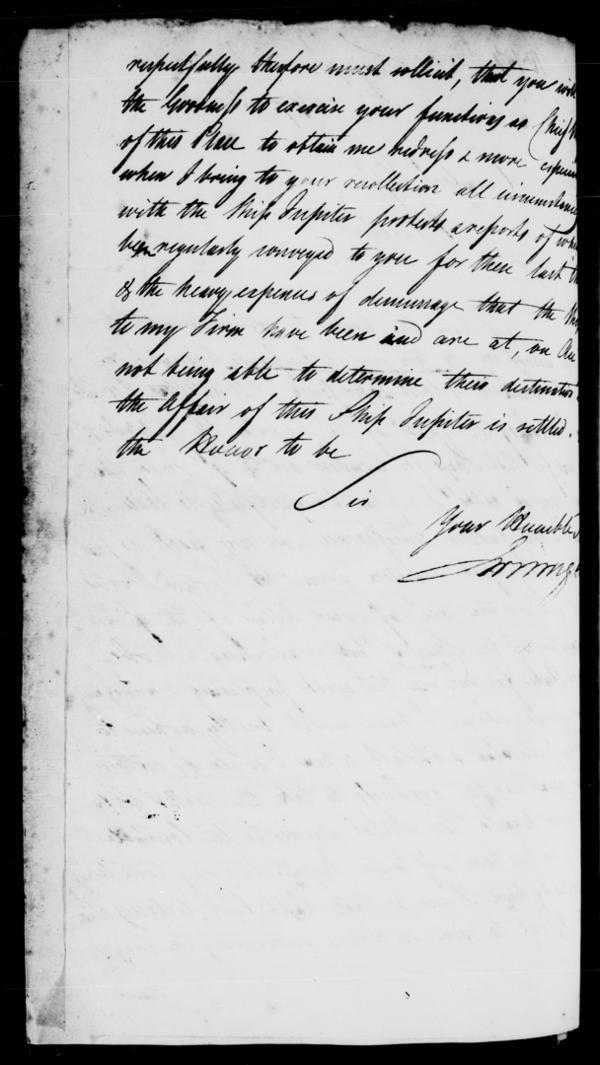 respectfully therefore must sollicit, that you
the Goodness to exercise your functions as Chief
of this Place to obtain me redress & more
when I bring to your recollection all circumstances
with the Ship Jupiter protests & reports of
been regularly conveyed to you for these last
& the heavy expences of demurrage that the
to my Firm have been and are at, on
not being able to determine their destination
the Affair of this Ship Jupiter is settled.
the Honor to be
Sir
Your Humble